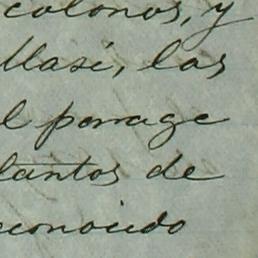 colonos, y
Masé, las
l porrage
lantos de
econocido